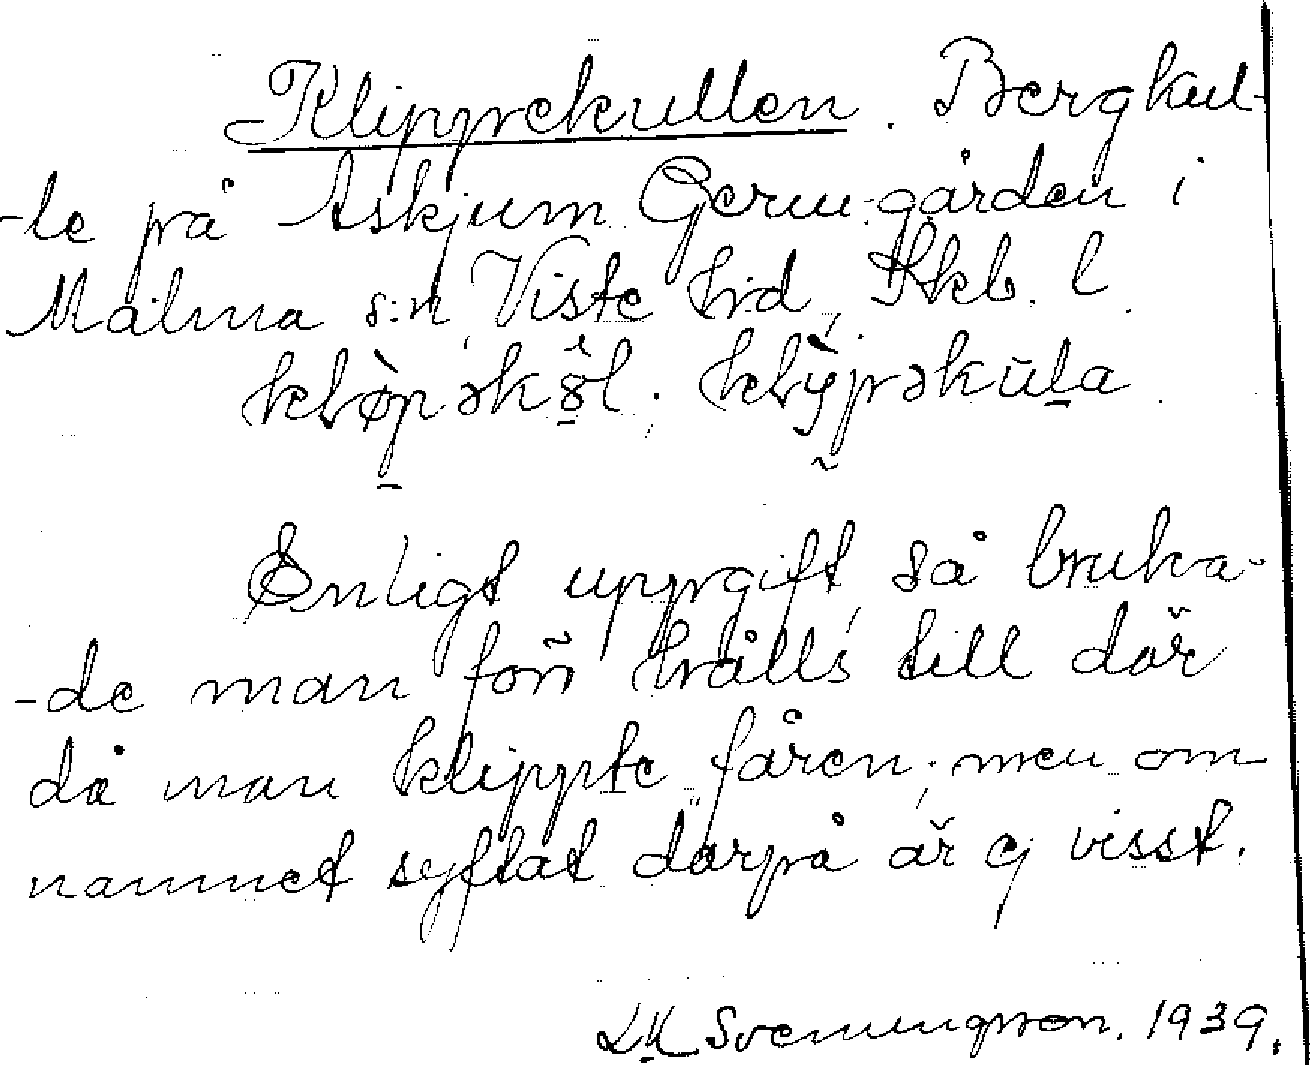 Klippekullen. Bergkul-
-le på Askjum Germ.gården i
Malma s:n, Viste hrd, Skb. l.
Enligt uppgift, så bruka-
-de man förr hålls till där
då man klippte fåren; men om
namnet syftat därpå är ej visst.
Svenungsson. 1939.